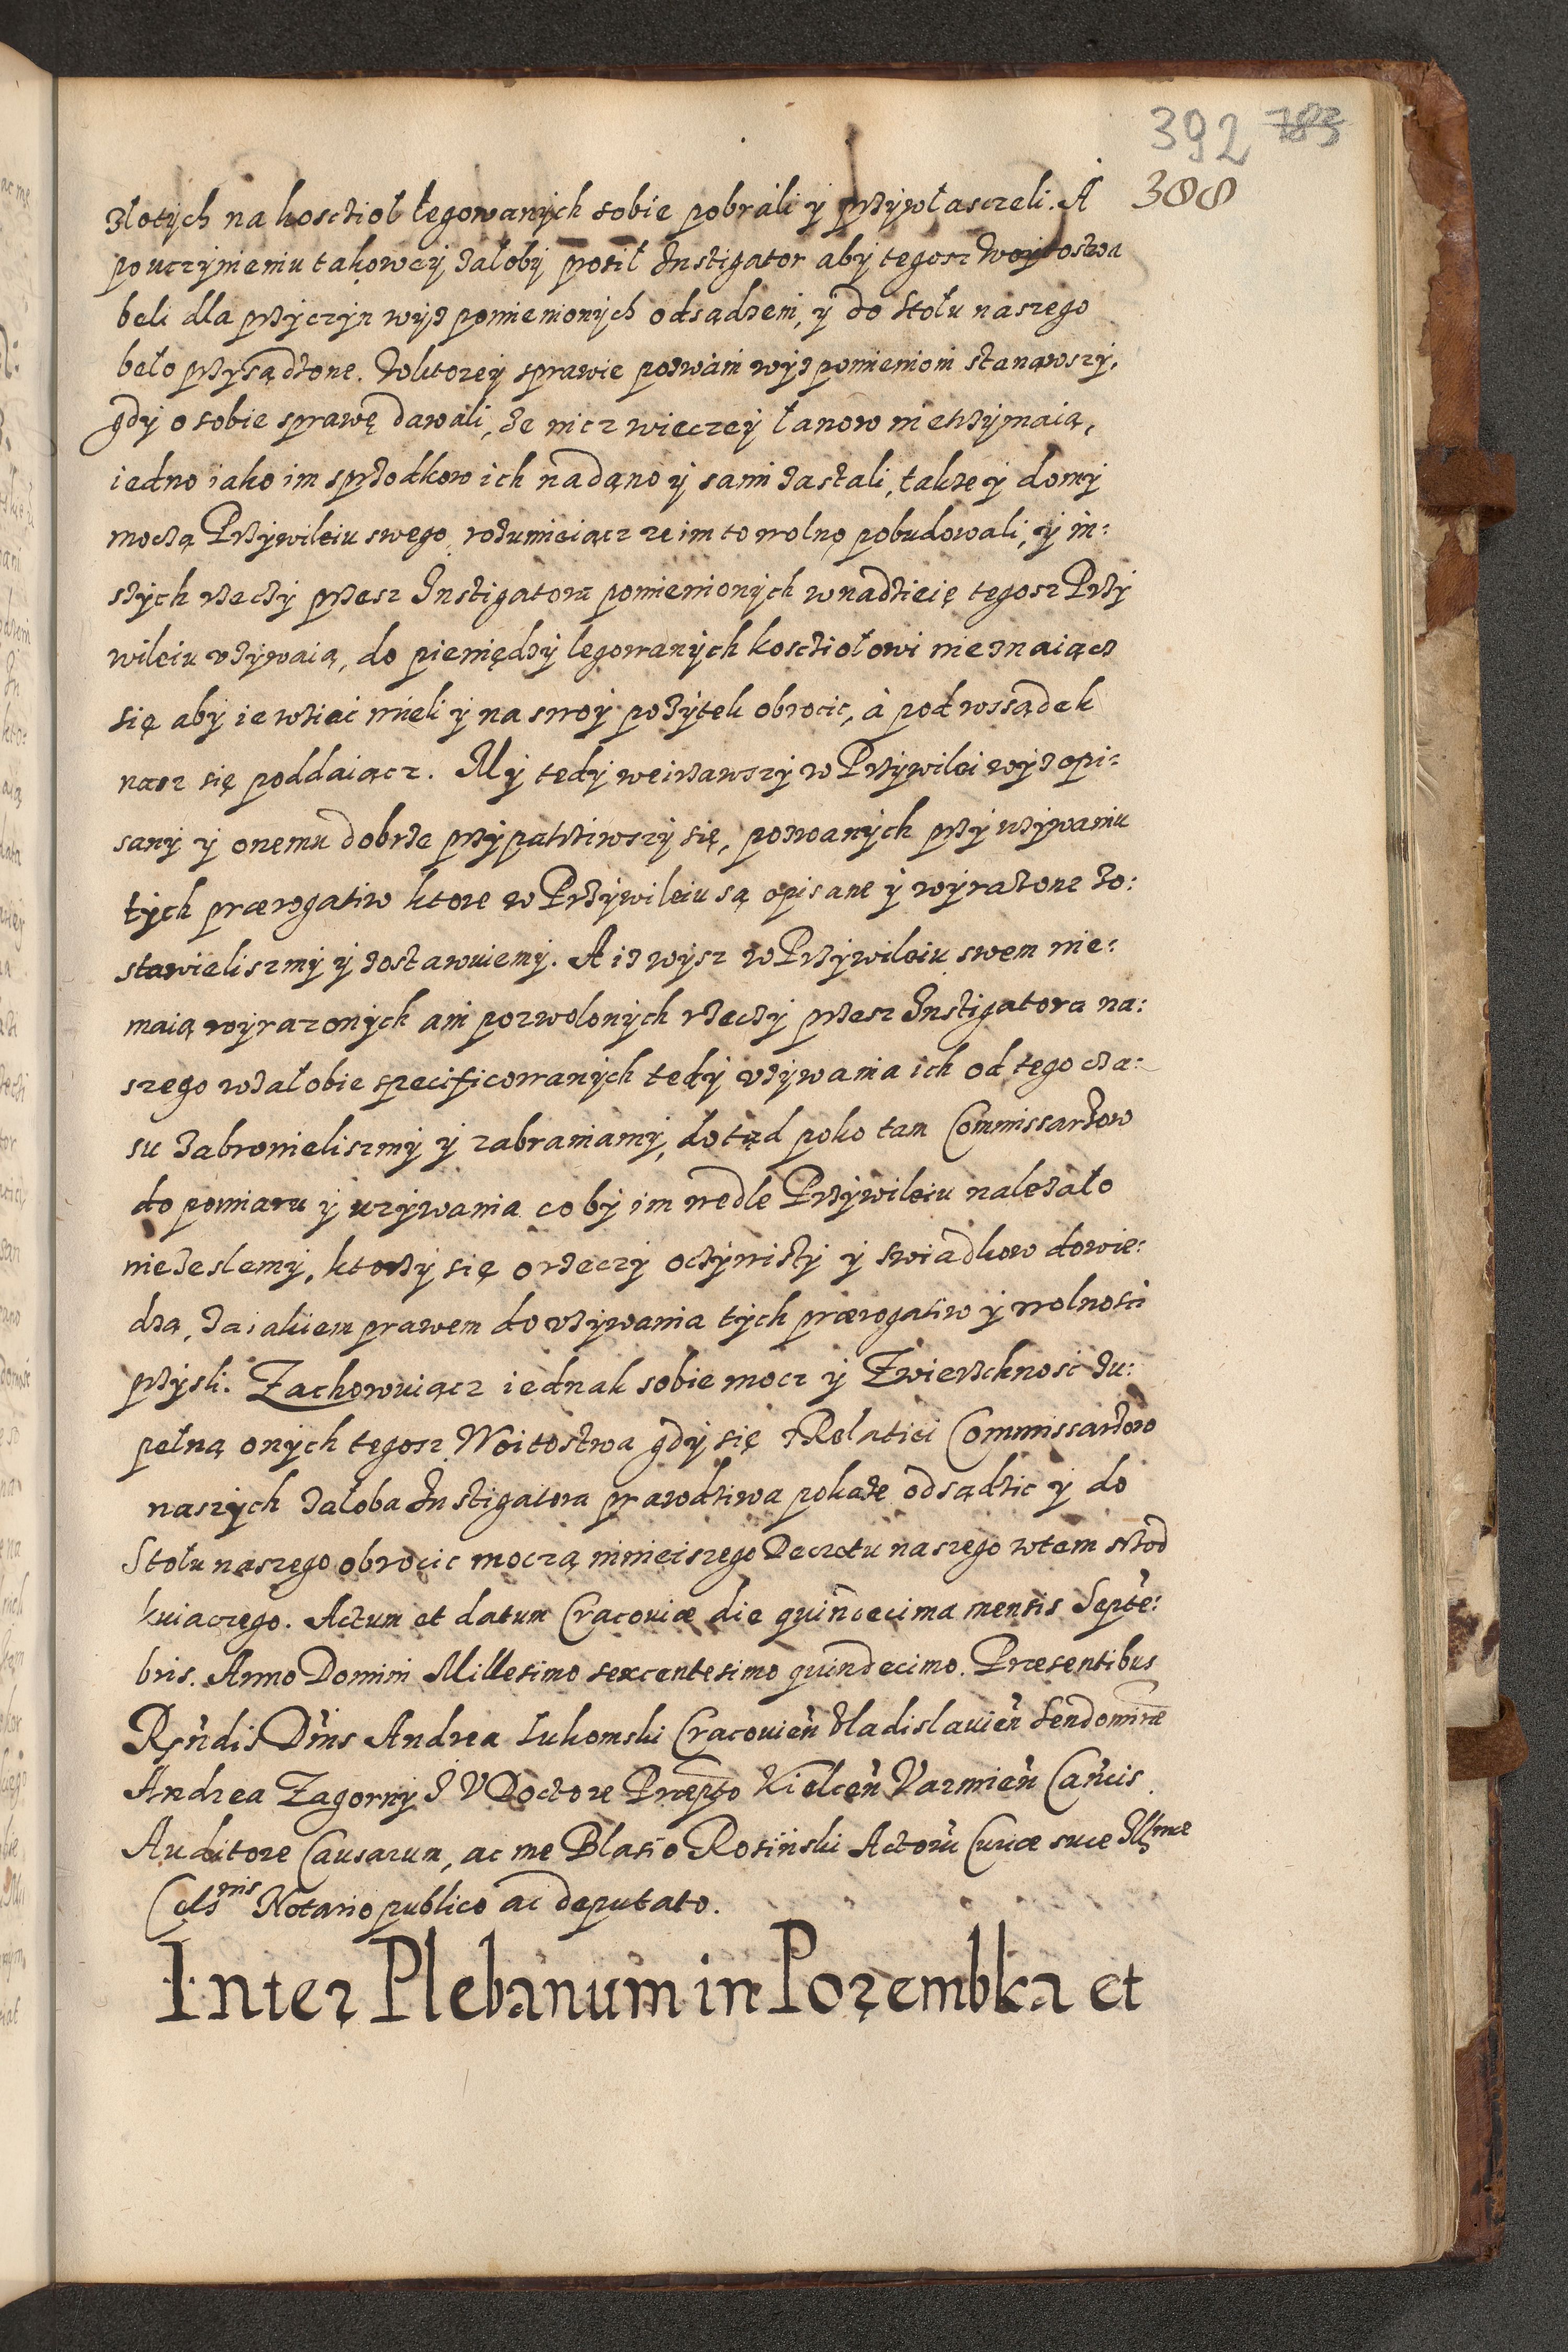 392 783
388
złotych na kosczioł łegowanych sobie pobrali y przywłasczeli. A
po uczynieniu takowey załoby prosił Instigator aby tegosz woytostwa
beli dla przyczyn wyz pomienionych odsądzeni, y do stołu naszego
beło przysądzone. W ktorey sprawie pozwani wyz pomienioni stanąwszy,
gdy o sobie sprawę dawali, ze nicz wieczey łanow nietrzymaią,
iedno iako im sprzodkow ich nadąno y sami zastali, takze y domy
moczą Przywileiu swego, rozumieiącz ze im to wolno pobudowali, y in:
szych rzeczy przesz Instigatora pomienionych w nadzieię tegosz Przy
wileiu uzywaią, do pieniędzy legowanych koscziołowi nieznaiącz
się aby ie wziąć mieli y na swoy pozytek obrocic, à pod rossądek
nasz się poddaiącz. My tedy weirzawszy w Przywilei wyz opi:
sany y onemu dobrze przypatrziwszy się, pozwanych przy uzywaniu
tych prærogatiw ktore w Przywileiu są opisane y wyrazone zo:
stawielismy y zostawuiemy. A iz wysz w Przywileiu swem nie:
maią wyrazonych ani pozwolonych rzeczy przesz Instigatora na:
szego w załobie specificowanych tedy uzywania ich od tego cza:
su zabronieliszmy y zabraniamy, dotąd poko tam Commissarzow
do pomiaru y uzywania coby im wedle Przywileiu nalezało
nie zeslemy, ktorzy się o rzeczy oczywisty y swiadkow dowie:
dzą, za iakiem prawem do uzywania tych prærogatiw y wolnosci
przysli. Zachowuiącz iednak sobie mocz y Zwierzchnosc zu:
pełną onych tegosz Woitostwa gdy się z Relatiei Commissarzow
naszych załoba Instigatora prawdziwa pokaze odsądzic y do
Stołu naszego obrocic moczą ninieiszego Decretu naszego w tem wrod
kuiaczego. Actum et datum Cracoviæ die quindecima mensis Septe:
bris. Anno Domini Millesimo sexcentesimo quindecimo. Præsentibus
Rndis Dnis Andrea Lukomski Cracovien Vladislavien Sendomiriæ
Andrea Zagorny I V Doctore Præpto Kielcen Varmien Cancis
Auditore Causarum, ac me Blasio Rosiński Actoru Curiæ suæ Illmæ
Celsnis Notario publico ac deputato.
Inter Plebanum in Porembka et